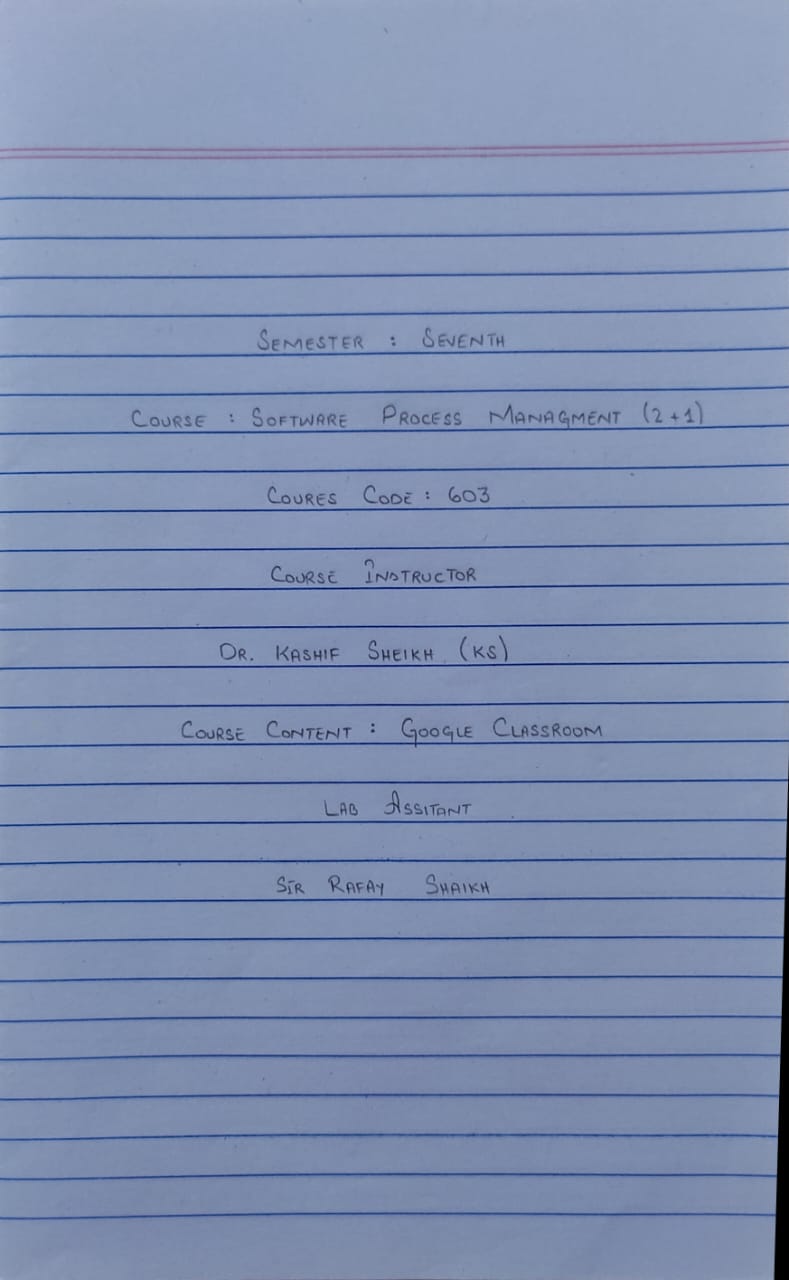 SEMESTER : SEVENTH
COURSE : SOFTWARE PROCESS MANAGMENT (2+1)
COURES CODE : 603
COURSE INSTRUCTOR
DR. KASHIF SHEIKH (KS)
COURSE CONTENT : GOOGLE CLASSROOM
LAB ASSITANT
SIR RAFAY SHAIKH